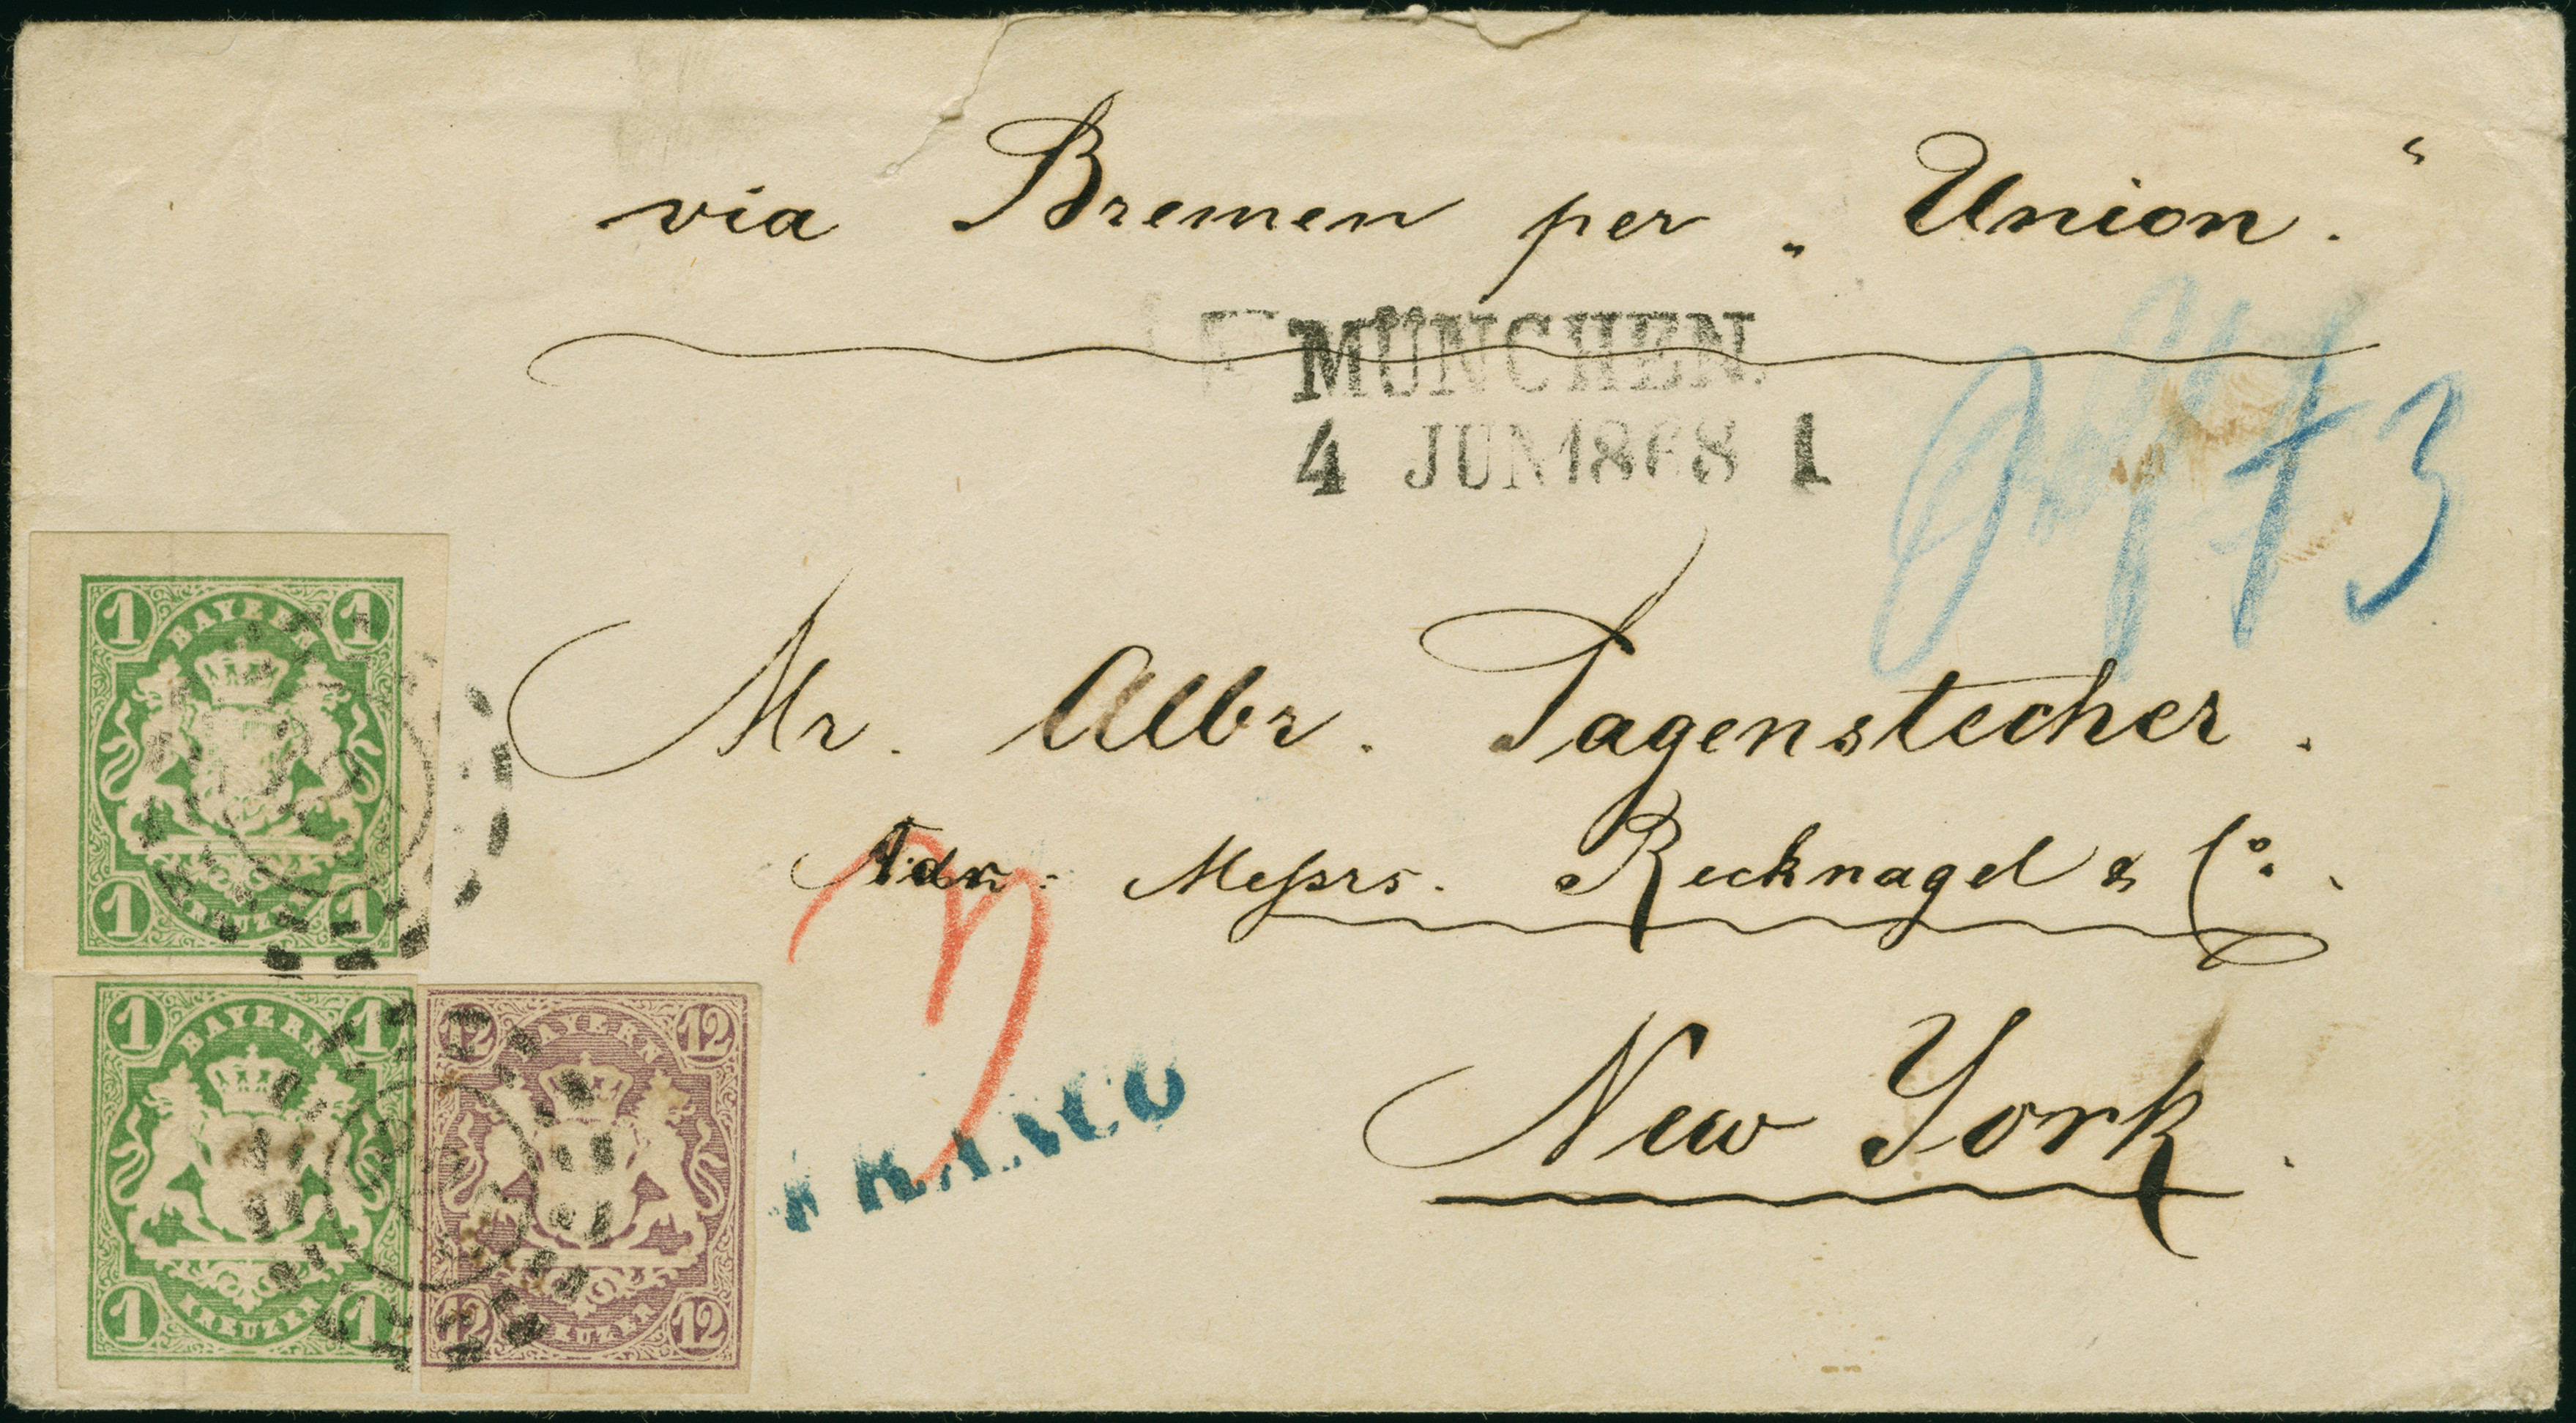 via Bremen per „Union.“
MÜNCHEN.
4 JUN 1868 1
Mr. Albr. Pagenstecher.
Adr: Messrs. Recknagel & Co.
New York.
3
FRANCO
1 1
BAYERN
KREUZER
1 1
1 1
BAYERN
KREUZER
1 1
12 12
BAYERN
KREUZER
12 12